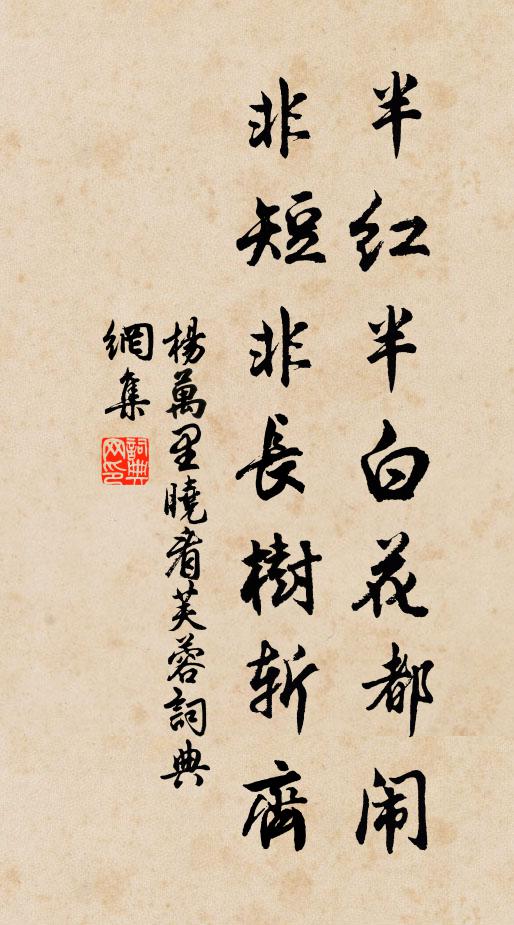 半红半白花都闹
非短非長樹斩齊
楊萬里曉看芙蓉詞典
網集
詞典
网印